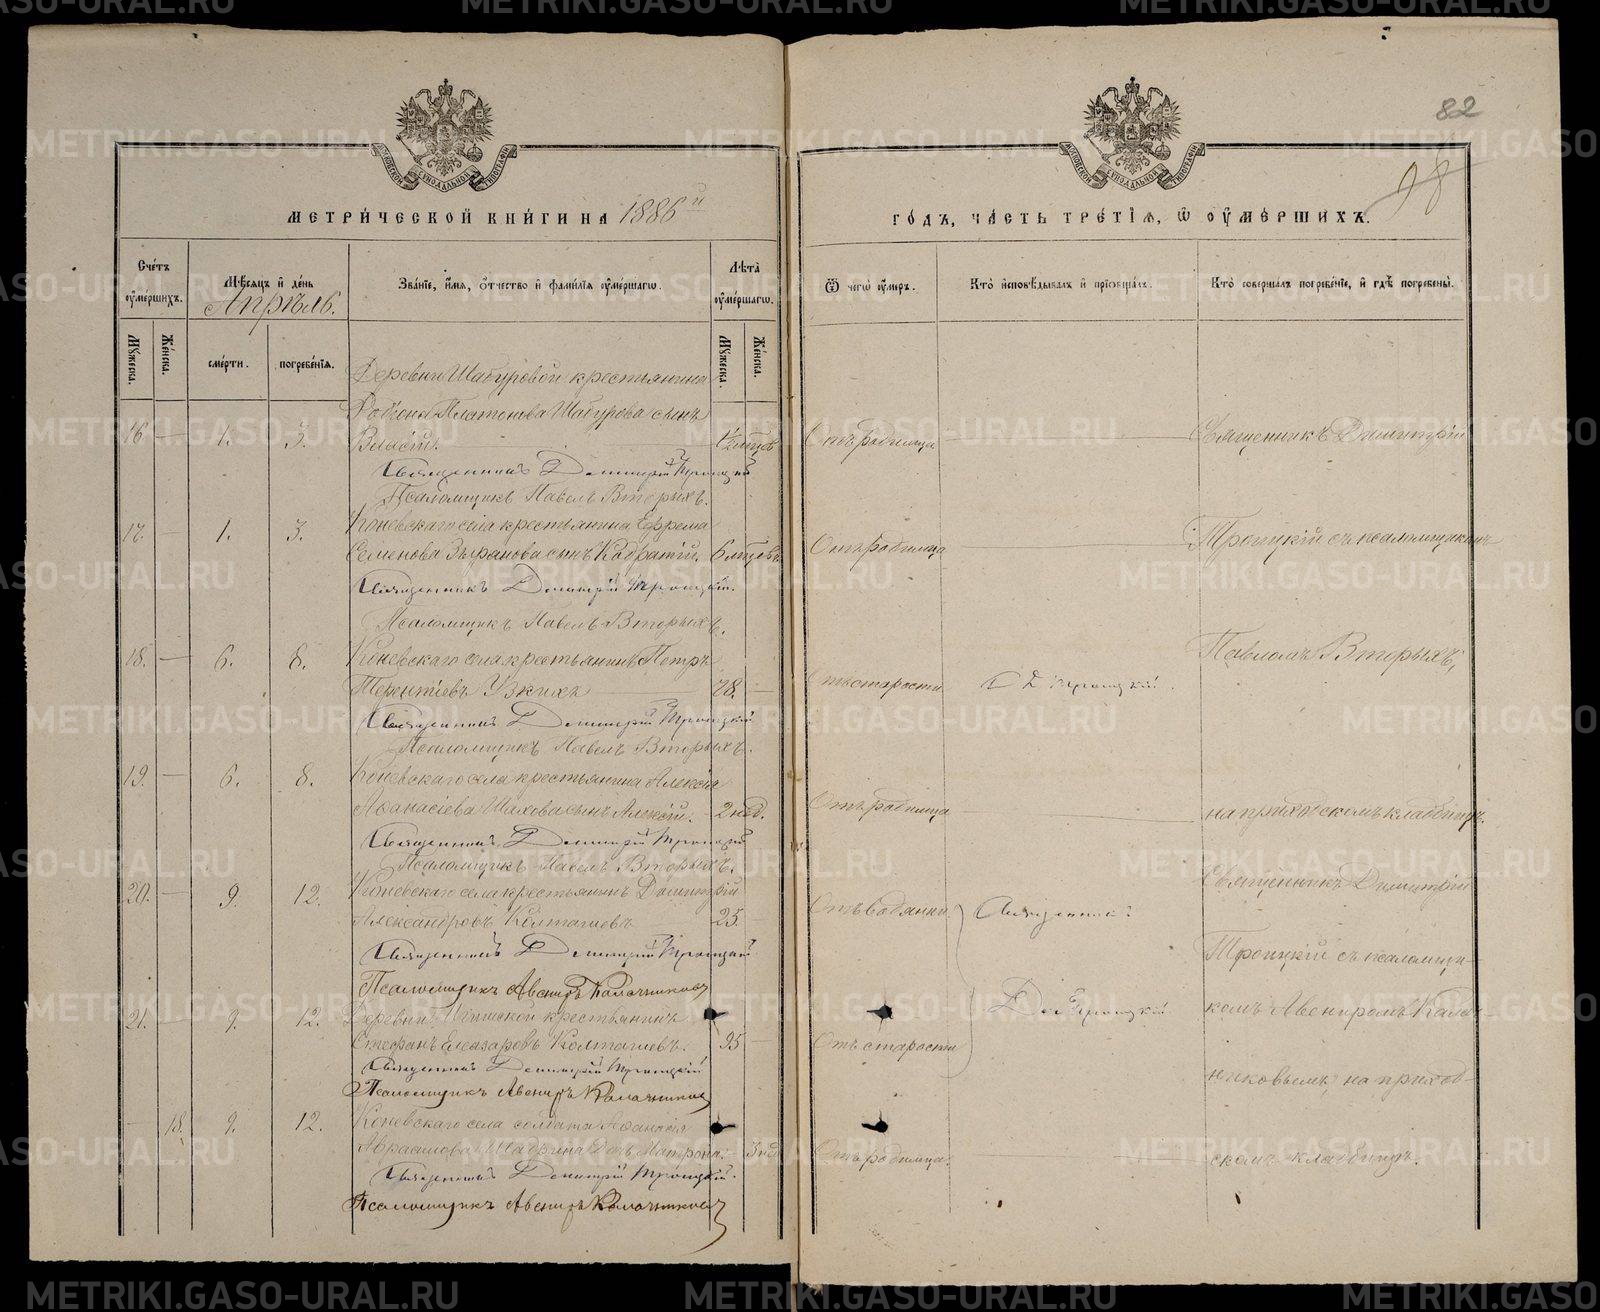 82
98
МЕТРИЧЕСКОЙ КНИГИ НА 1886й
ГОДЪ, ЧАСТЬ ТРЕТІЯ, Ѿ ОУМЕРШИХЪ.
Счетъ оумершихъ.
Мѣсяцъ и день
Апрѣль.
Званіе, имя, отчество и фамилія оумершагѡ.
Лѣта оумершагѡ.
Ѿ чегѡ оумеръ.
Кто исповѣдывалъ и пріобщалъ.
Кто совершалъ погребеніе, и гдѣ погребены.
Мужеска.
Женска.
смерти.
погребенія.
Мужеска.
Женска.
Деревни Шабуровой крестьянина
Родіона Платонова Шабурова сынъ
16 — 1. 3. Власій. Отъ родимца Священникъ Димитрій
Священникъ Димитрій Троицкій
Псаломщикъ Павелъ Вторыхъ.
17. — 1. 3. Коневскаго села крестьянина Ефрема Троицкій съ псаломщикомъ
Семенова Зырянова сынъ Кодратій. Отъ родимца
Священникъ Димитрій Троицкій.
Псаломщикъ Павелъ Вторыхъ.
18. — 6. 8. Коневскаго села крестьянинъ Петръ Павломъ Вторыхъ,
Терентіевъ Узкихъ 78. — Отъ старости С Д Троицкій.
Священникъ Димитрій Троицкій
Псаломщикъ Павелъ Вторыхъ.
19. — 6. 8. Коневскаго села крестьянина Алексія
Аѳанасіева Шахова сынъ Алексій. 2 нед. Отъ родимца на приходскомъ кладбищѣ.
Священникъ Димитрій Троицкій
Псаломщикъ Павелъ Вторыхъ.
20. — 9. 12. Коневскаго села крестьянинъ Димитрій Священникъ Димитрій
Александровъ Колташевъ 25. Отъ водянки Священникъ
Священникъ Димитрій Троицкій Троицкій съ псаломщи-
Псаломщикъ Авениръ Калачниковъ
21. — 9. 12. Деревни крестьянинъ Троицкій комъ Авениромъ Калач-
Стефанъ Елеазаровъ Колташевъ. 95 — Отъ старости
Священникъ Димитрій Троицкій никовымъ, на приход-
Псаломщикъ Авениръ Калачниковъ
— 18. 9. 12. Коневскаго села солдата Аѳанасія
Авраамова Шабрина дочь Матрона. — 3 нед Отъ родимца. скомъ кладбищѣ.
Священникъ Димитрій Троицкій.
Псаломщикъ Авениръ Калачниковъ
METRIKI.GASO-URAL.RU